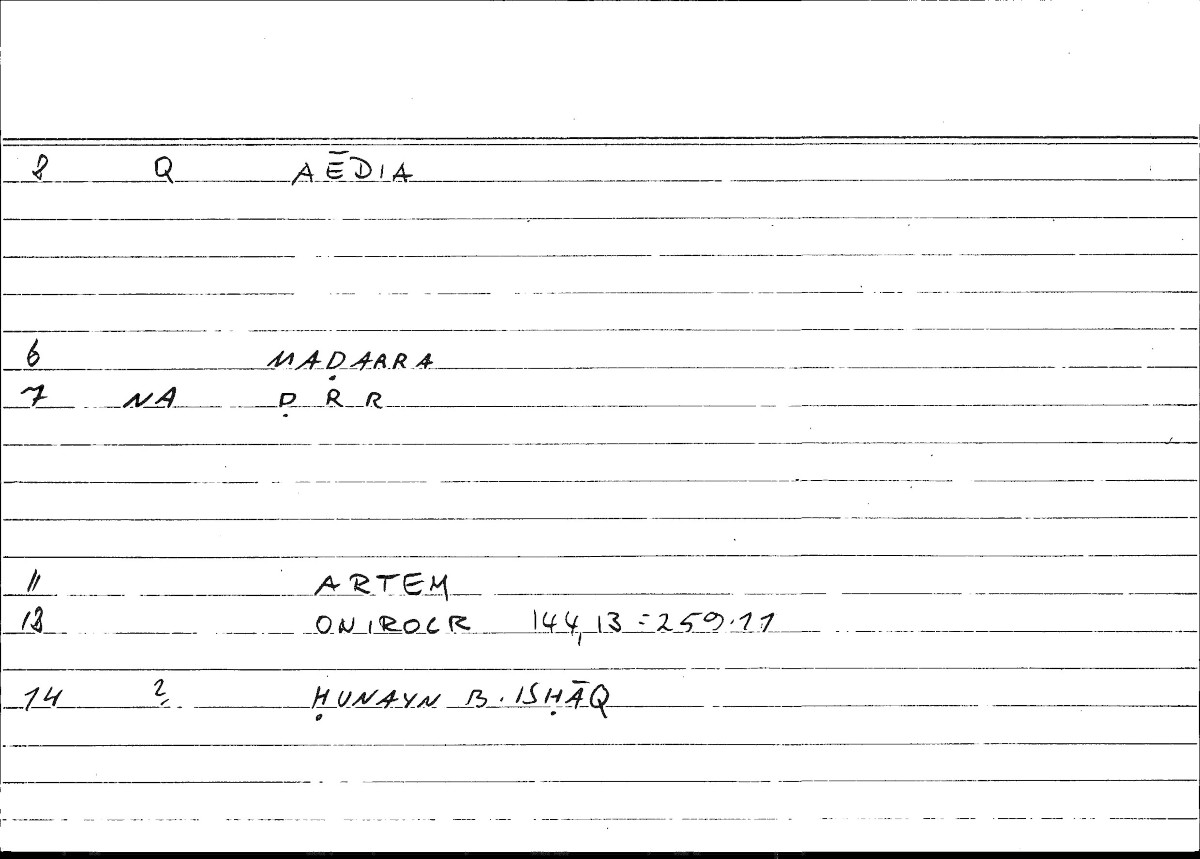 2 Q AĒDIA
6 MAḌARRA
7 NA Ḍ R R
11 ARTEM
12 ONIROCR 144,13=259.11
14 ? ḤUNAYN B. ISḤĀQ